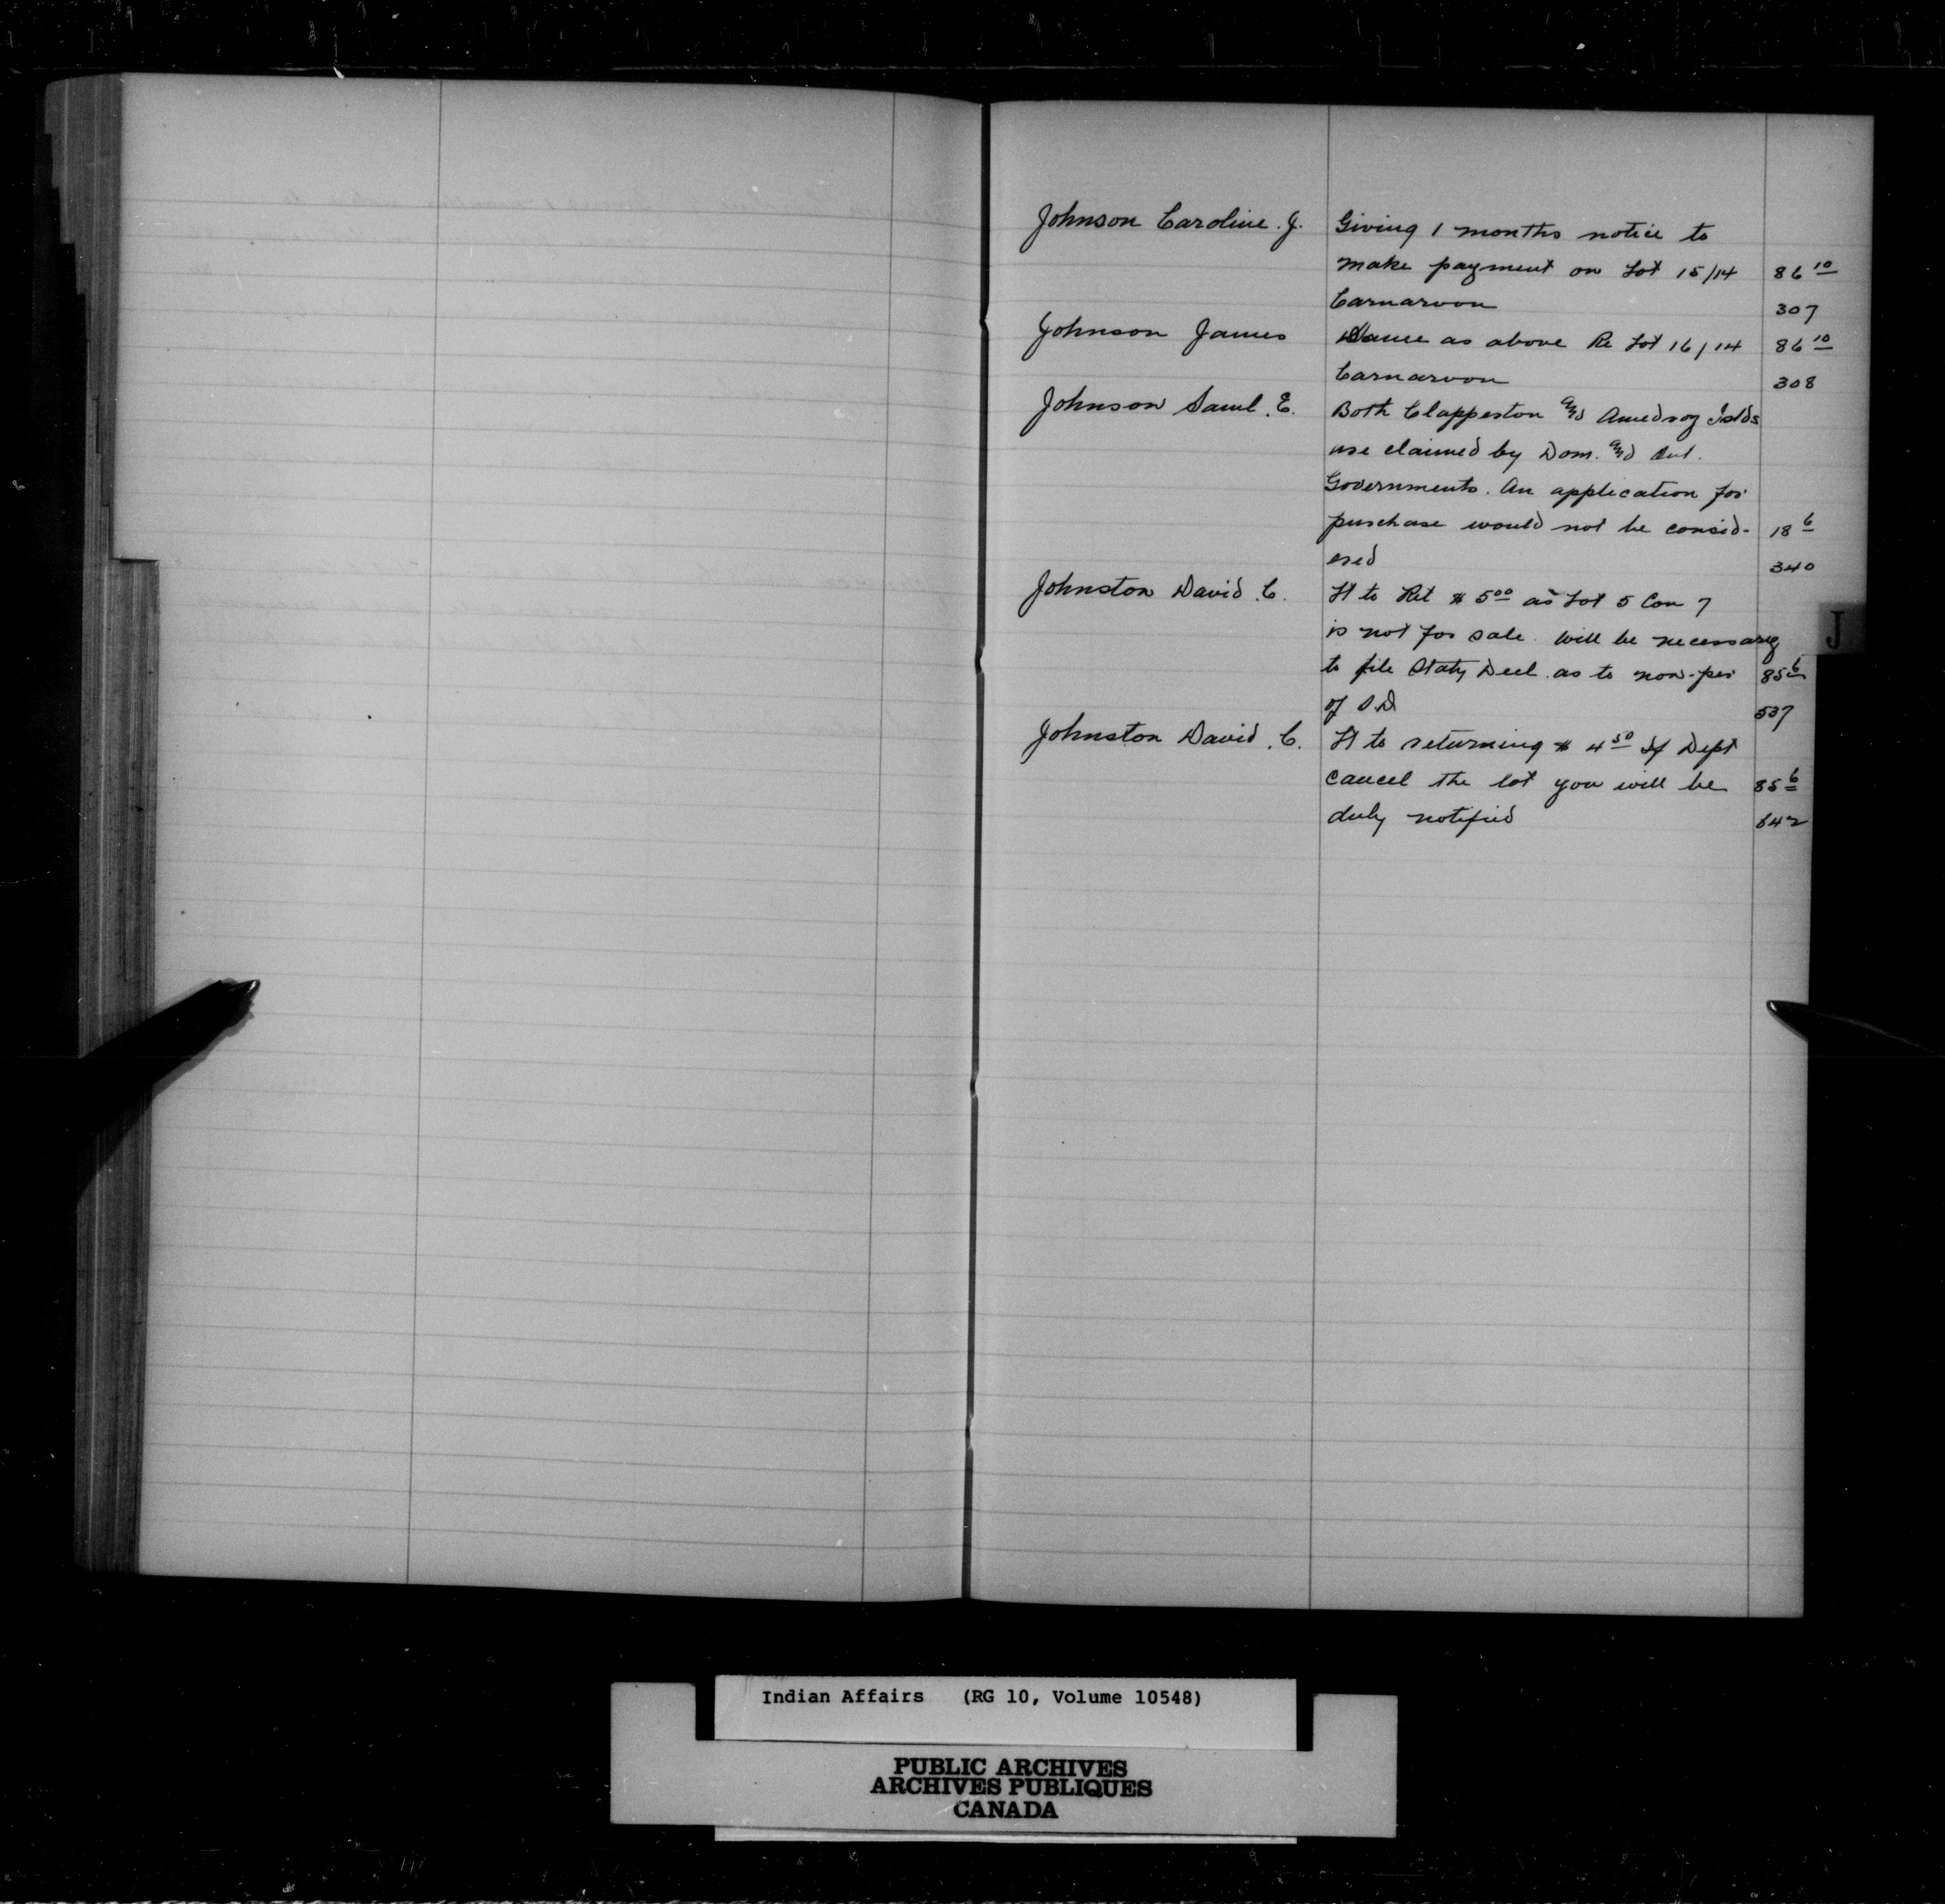 Johnson Caroline. J. Giving 1 months notice to
make payment on Lot 15/14 86 10
Carnarvon 307
Johnson James Same as above Re Lot 16/14 86 10
Carnarvon 308
Johnson Saml. E. Both Clapperton and Islds
are claimed by Dom. and Ont.
Governments. An application for
purchase would not be consid- 18 6
ered 340
Johnston David. C. Lt to Ret $5 00 as Lot 5 Con 7
is not for sale. Will be necessary
to file Staty Decl. as to non-per 85 6
of S.D. 537
Johnston David. C. Lt to returning $4 50 If Dept
cancel the lot you will be 85 6
duly notified 642
J
Indian Affairs (RG 10, Volume 10548)
PUBLIC ARCHIVES
ARCHIVES PUBLIQUES
CANADA